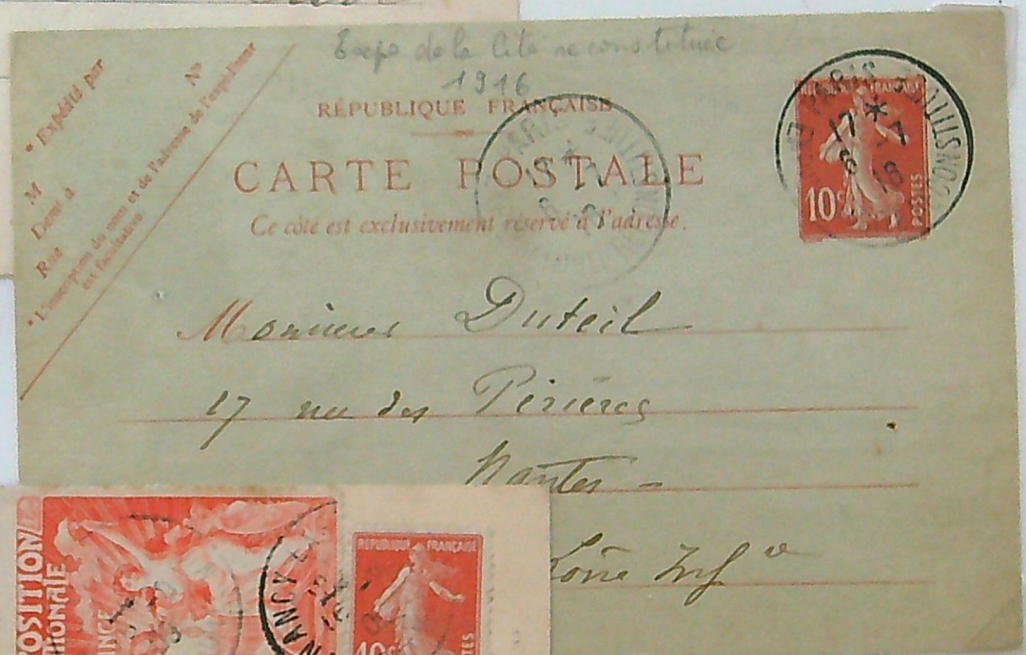 Expo de la Cité reconstituée
1916
RÉPUBLIQUE FRANÇAISE
CARTE POSTALE
Ce côté est exclusivement réservé à l'adresse.
* Expédié par
M
Dem^t à
Rue
N°
* L'inscription du nom et de l'adresse de l'expéditeur
est facultative.
RÉPUBLIQUE FRANÇAISE
10c
POSTES
PARIS
17 * 7
18
Duteil
17 rue des
Nantes -
Loire Inf^re
POSITION
NANCY
RÉPUBLIQUE FRANÇAISE
10c